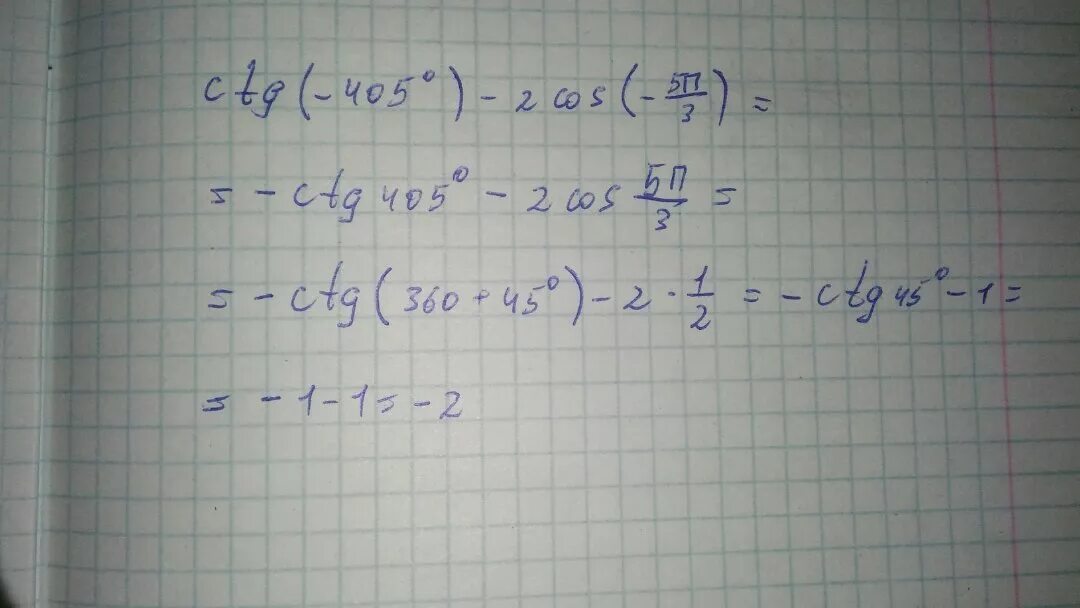 ctg(-405°) - 2 cos(-5П/3) =
= - ctg 405° - 2 cos 5П/3 =
= - ctg(360 + 45°) - 2 · 1/2 = - ctg 45° - 1 =
= - 1 - 1 = - 2